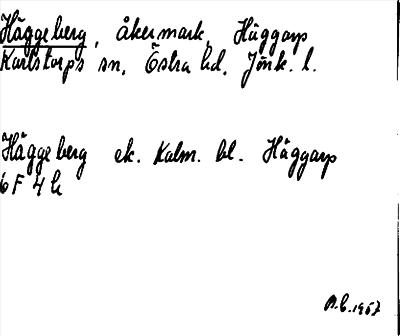 Häggeberg, åkermark, Häggarp
Karlstorps sn, Östra hd. Jönk. l.
Häggeberg ek. Kalm. bl. Häggarp
6 F 4 h
1967